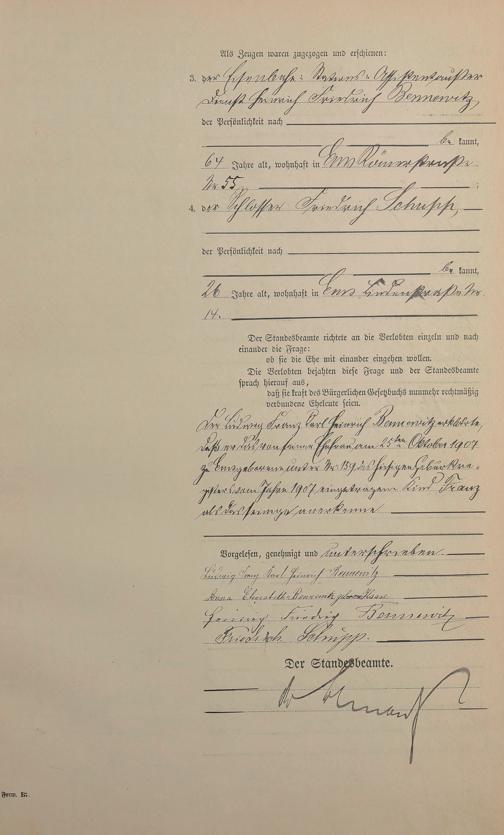 Als Zeugen waren zugezogen und erschienen:
3. der Eisenbahn-Stations-Assistent außer
Dienst Heinrich Friedrich Bennewitz,
der Persönlichkeit nach
be kannt,
64 Jahre alt, wohnhaft in Ems Römerstraße
Nr. 55;
4. der Schlosser Friedrich Schupp,
der Persönlichkeit nach
be kannt,
26 Jahre alt, wohnhaft in Ems Lindenstraße Nr.
14.
Der Standesbeamte richtete an die Verlobten einzeln und nach
einander die Frage:
ob sie die Ehe mit einander eingehen wollen.
Die Verlobten bejahten diese Frage und der Standesbeamte
sprach hierauf aus,
daß sie kraft des Bürgerlichen Gesetzbuchs nunmehr rechtmäßig
verbundene Eheleute seien.
Der Ludwig Franz Carl Heinrich Bennewitz erklärte,
daß er das von seiner Ehefrau am 25ten Oktober 1907
zu Ems geborene unter Nr. 139 des hiesigen Geburtsre-
gisters vom Jahre 1907 eingetragene Kind Franz
als das seinige anerkenne
Vorgelesen, genehmigt und unterschrieben.
Ludwig Franz Karl Heinrich Bennewitz
Anna Elisabeth Bennewitz geborene
Heinrich Friedrich Bennewitz
Friedrich Schupp.
Der Standesbeamte.
Form. Bf.